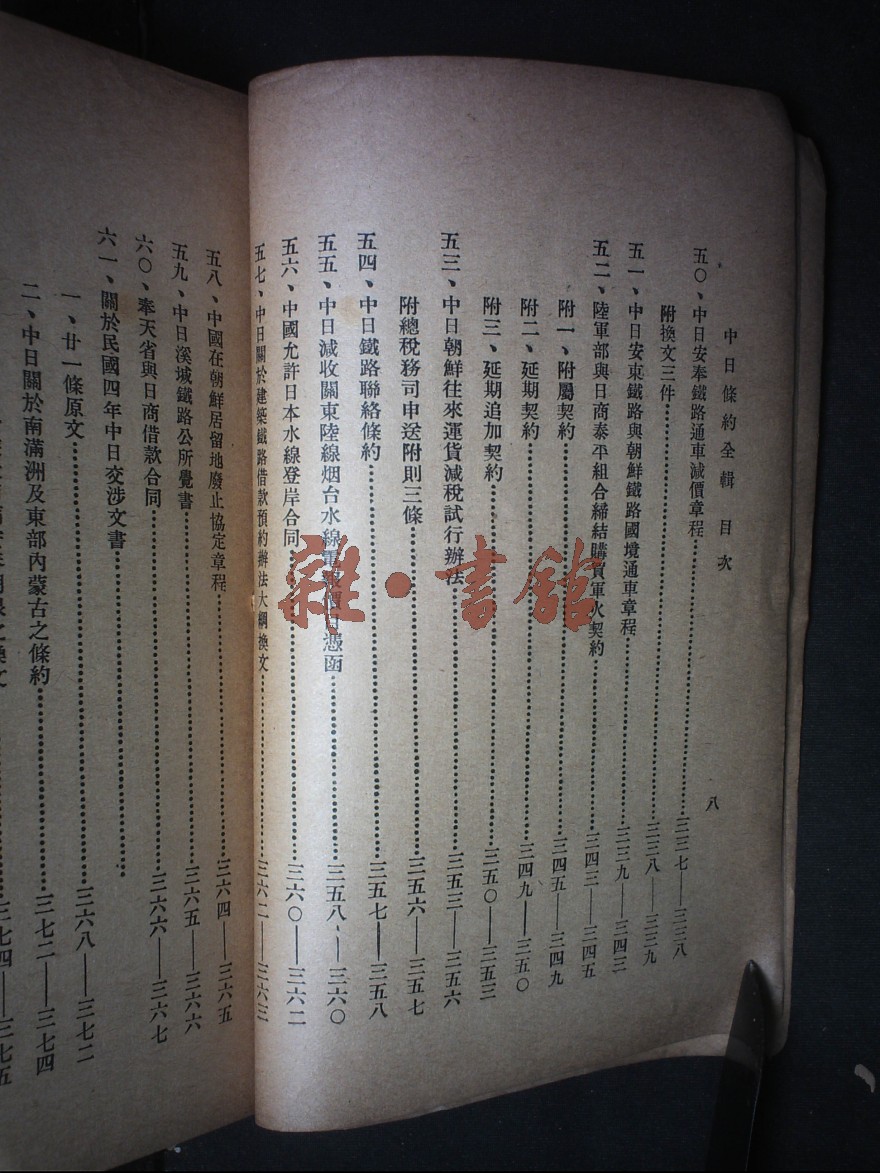 中日條約全輯 目次
八
五〇、中日安奉鐵路通車減價章程……三三七——三三八
附換文三件……三三八——三三九
五一、中日安東鐵路與朝鮮鐵路國境通車章程……三三九——三四三
五二、陸軍部與日商泰平組合締結購買軍火契約……三四三——三四五
附一、附屬契約……三四五——三四九
附二、延期契約……三四九——三五〇
附三、延期追加契約……三五〇——三五三
五三、中日朝鮮往來運貨減稅試行辦法……三五三——三五六
附總稅務司申送附則三條……三五六——三五七
五四、中日鐵路聯絡條約……三五七——三五八
五五、中日減收關東陸線烟台水線電報價目憑函……三五八——三六〇
五六、中國允許日本水線登岸合同……三六〇——三六二
五七、中日關於建築鐵路借款預約辦法大綱換文……三六二——三六三
五八、中國在朝鮮居留地廢止協定章程……三六四——三六五
五九、中日溪堿鐵路公所覺書……三六五——三六六
六〇、奉天省與日商借款合同……三六六——三六七
六一、關於民國四年中日交涉文書……
一、廿一條原文……三六八——三七二
二、中日關於南滿洲及東部內蒙古之條約……三七二——三七四
之換文……三七四——三七五
雜·書館